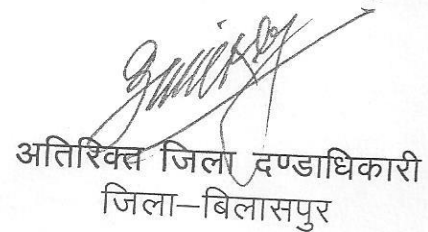 अतिरिक्त जिला दण्डाधिकारी
जिला–बिलासपुर